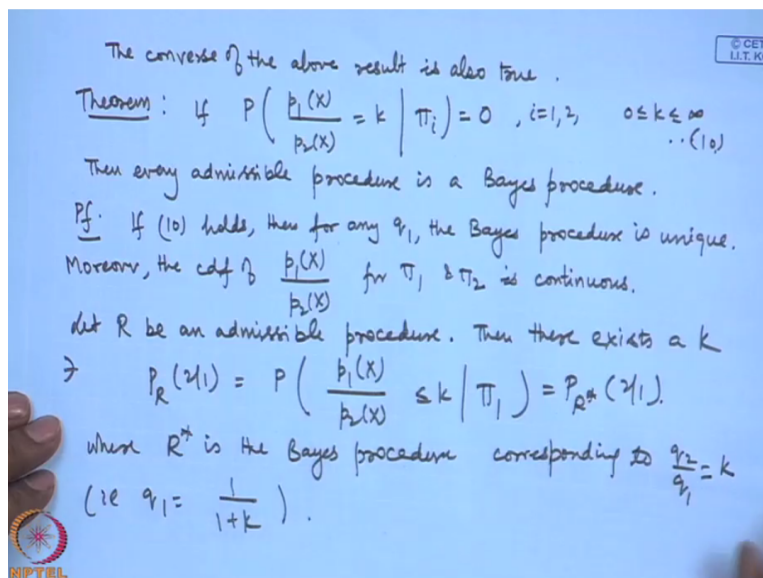 The converse of the above result is also true.
© CET
I.I.T. K
Theorem : If P( p₁(X)/p₂(X) = k | Πᵢ ) = 0 , i=1,2, 0 ≤ k ≤ ∞ ..(10)
Then every admissible procedure is a Bayes procedure.
Pf. If (10) holds, then for any q₁, the Bayes procedure is unique.
Moreover, the cdf of p₁(X)/p₂(X) for Π₁ & Π₂ is continuous.
Let R be an admissible procedure. Then there exists a k
∋ P_R(2/1) = P( p₁(X)/p₂(X) ≤ k | Π₁ ) = P_R*(2/1).
where R* is the Bayes procedure corresponding to q₂/q₁ = k
(ie q₁ = 1/(1+k) ).
NPTEL